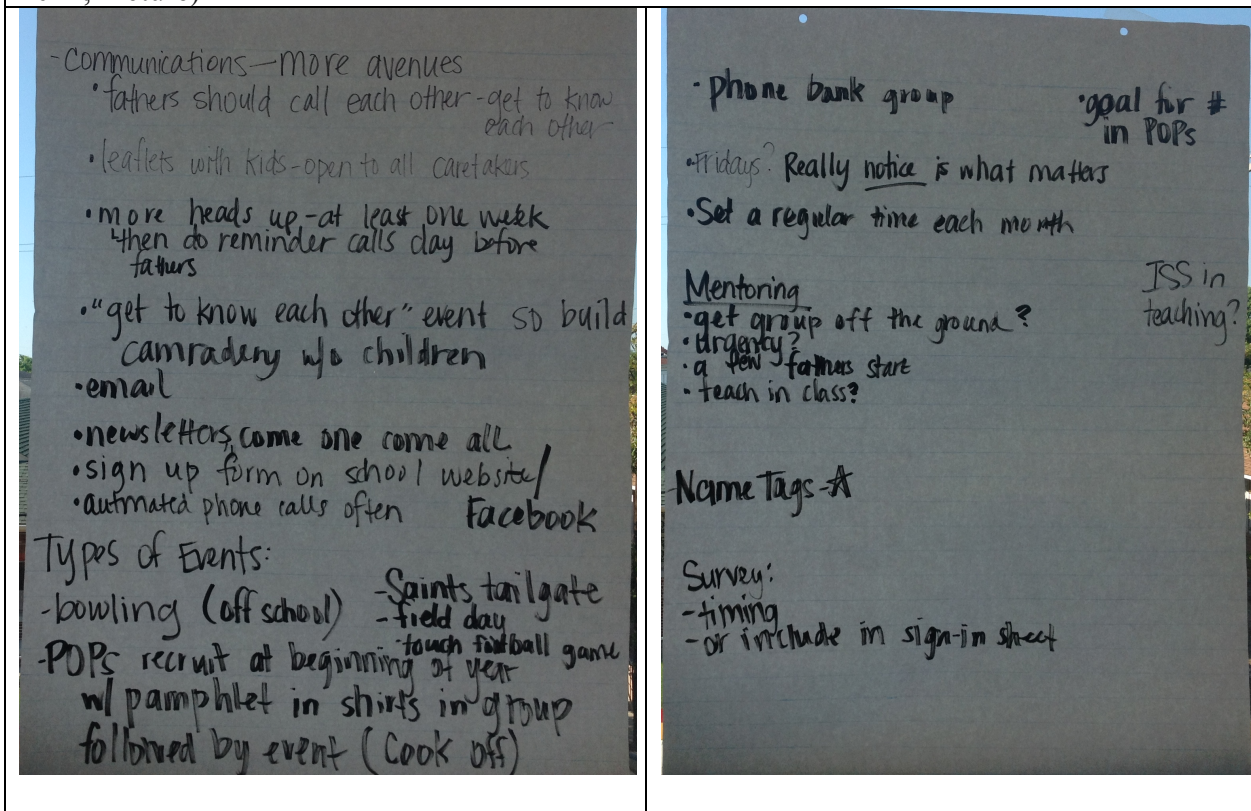 -Communications—more avenues
•fathers should call each other-get to know
each other
•leaflets with kids-open to all caretakers
•more heads up-at least one week
↳then do reminder calls day before
fathers
•"get to know each other" event so build
camradery w/o children
•email
•newsletters, come one come all
•sign up form on school website/
•autmated phone calls often Facebook
Types of Events:
-bowling (off school)
-Saints tailgate
-field day
-touch football game
-POPs recruit at beginning of year
w/ pamphlet in shirts in group
followed by event (Cook off)
•phone bank group
•goal for #
in POPs
•Fridays? Really notice is what matters
•Set a regular time each month
Mentoring
•get group off the ground?
•Urgenty?
•a few fathers start
•teach in class?
ISS in
teaching?
Name Tags-☆
Survey:
-timing
-or include in sign-in sheet